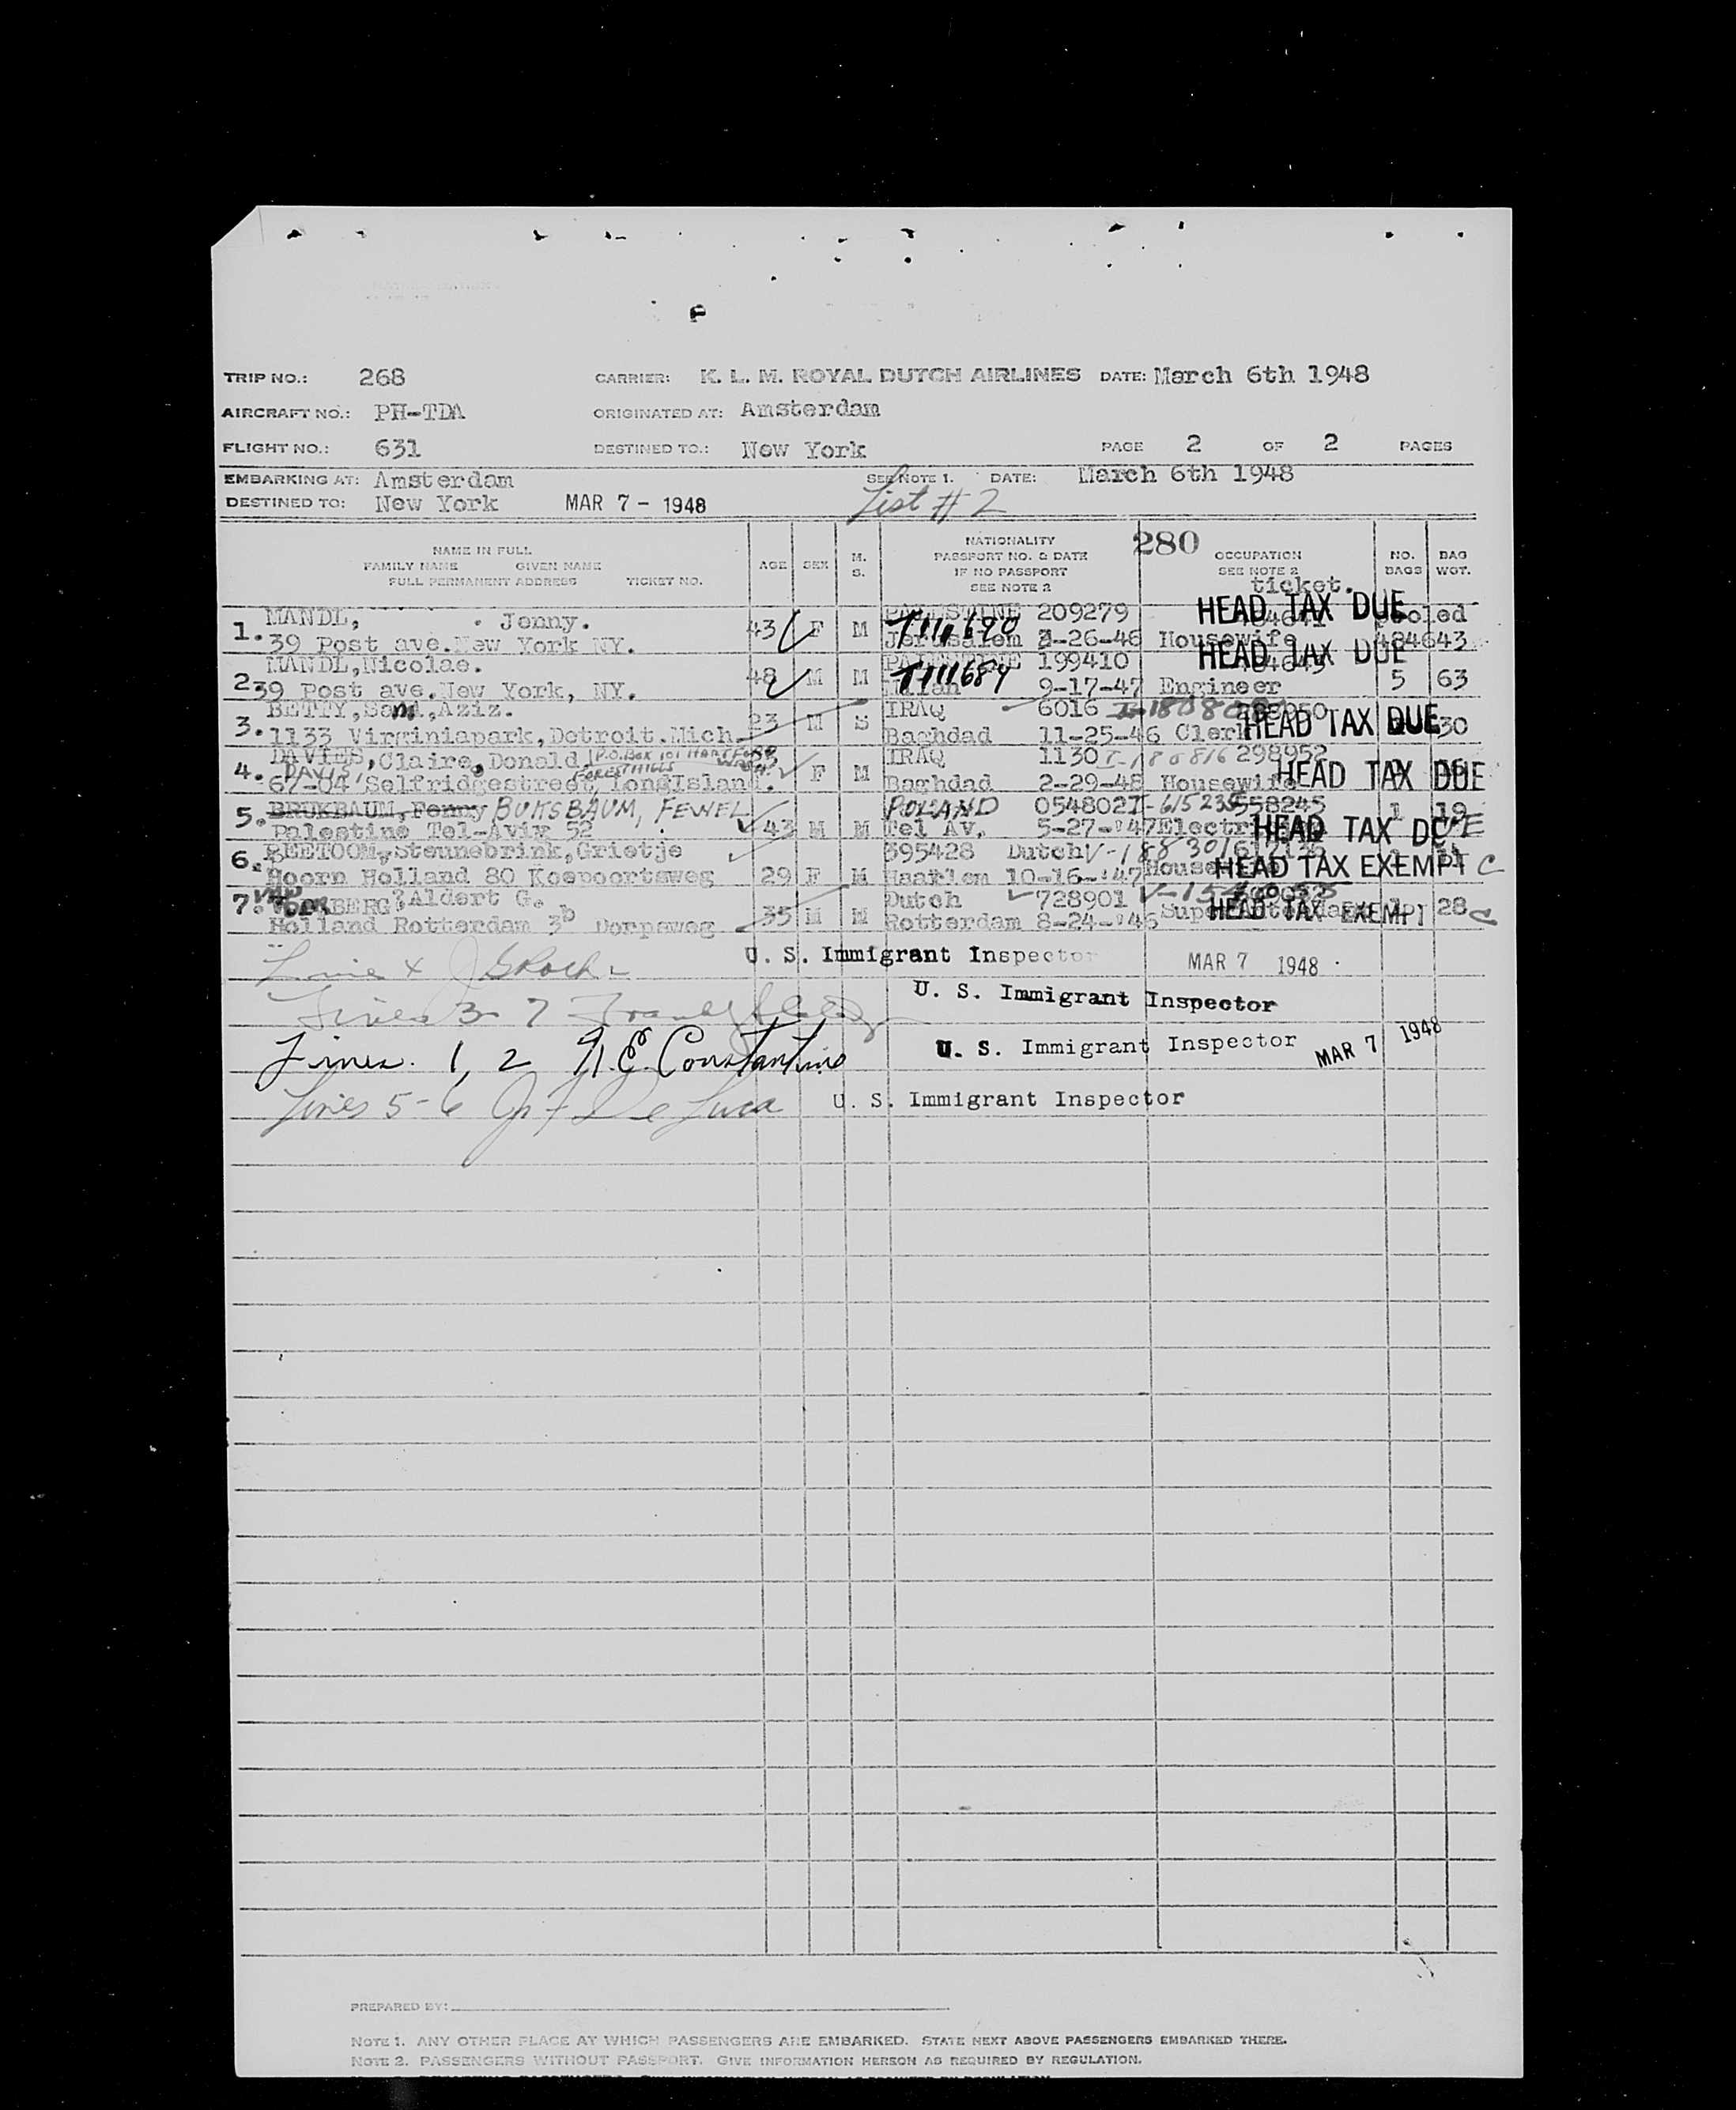 TRIP NO.: 268 CARRIER: K. L. M. ROYAL DUTCH AIRLINES DATE: March 6th 1948
AIRCRAFT NO.: PH-TDA ORIGINATED AT: Amsterdam
FLIGHT NO.: 631 DESTINED TO.: New York PAGE 2 OF 2 PAGES
EMBARKING AT: Amsterdam SEE NOTE 1. DATE: March 6th 1948
DESTINED TO: New York MAR 7 - 1948 List # 2
NAME IN FULL
FAMILY NAME GIVEN NAME
FULL PERMANENT ADDRESS TICKET NO.
AGE SEX M. S.
NATIONALITY
PASSPORT NO. & DATE
IF NO PASSPORT
SEE NOTE 2
280
OCCUPATION
SEE NOTE 2
ticket.
NO. BAGS BAG WGT.
MANDL, Jenny. PALESTINE 209279 HEAD TAX DUE
1. 39 Post ave. New York NY. 43 F M T111690 Jerusalem -26-46 Housewife 484643
MANDL, Nicolae. PALESTINE 199410 HEAD TAX DUE
2. 39 Post ave. New York, NY. 48 M M 9-17-47 Engineer 5 63
BETTY, Sam., Aziz. IRAQ 6016
3. 1133 Virginiapark, Detroit. Mich. 23 M S Baghdad 11-25-46 Clerk HEAD TAX DUE 30
DAVIES, Claire, Donald. P.O. Box 101 HARTFORD IRAQ 1130 298952
DAVIS, FOREST HILLS
4. 67-04 Selfridgestreet, LongIsland. F M Baghdad 2-29-48 Housewife HEAD TAX DUE
5. BRUKBAUM, Fenny BUKSBAUM, FEWEL POLAND 054802 558245 1 19
Palestine Tel-Aviv 52 43 M M Tel Av. 5-27-'47 HEAD TAX DUE
6. BEETOOM, Steunebrink, Grietje 595428 Dutch
Hoorn Holland 80 Koepoortsweg 29 F M Haarlem 10-16-'47 HEAD TAX EXEMPT C
7. Aldert G. Dutch 728901
Holland Rotterdam 3b Dorpsweg 35 M M Rotterdam 8-24-'46 HEAD TAX EXEMPT 28 C
Line U. S. Immigrant Inspector MAR 7 1948
Lines 3 - 7 U. S. Immigrant Inspector
Lines. 1, 2 N. E. Constantino U. S. Immigrant Inspector MAR 7 1948
Lines 5-6 De Luca U. S. Immigrant Inspector
PREPARED BY:
NOTE 1. ANY OTHER PLACE AT WHICH PASSENGERS ARE EMBARKED. STATE NEXT ABOVE PASSENGERS EMBARKED THERE.
NOTE 2. PASSENGERS WITHOUT PASSPORT. GIVE INFORMATION HEREON AS REQUIRED BY REGULATION.